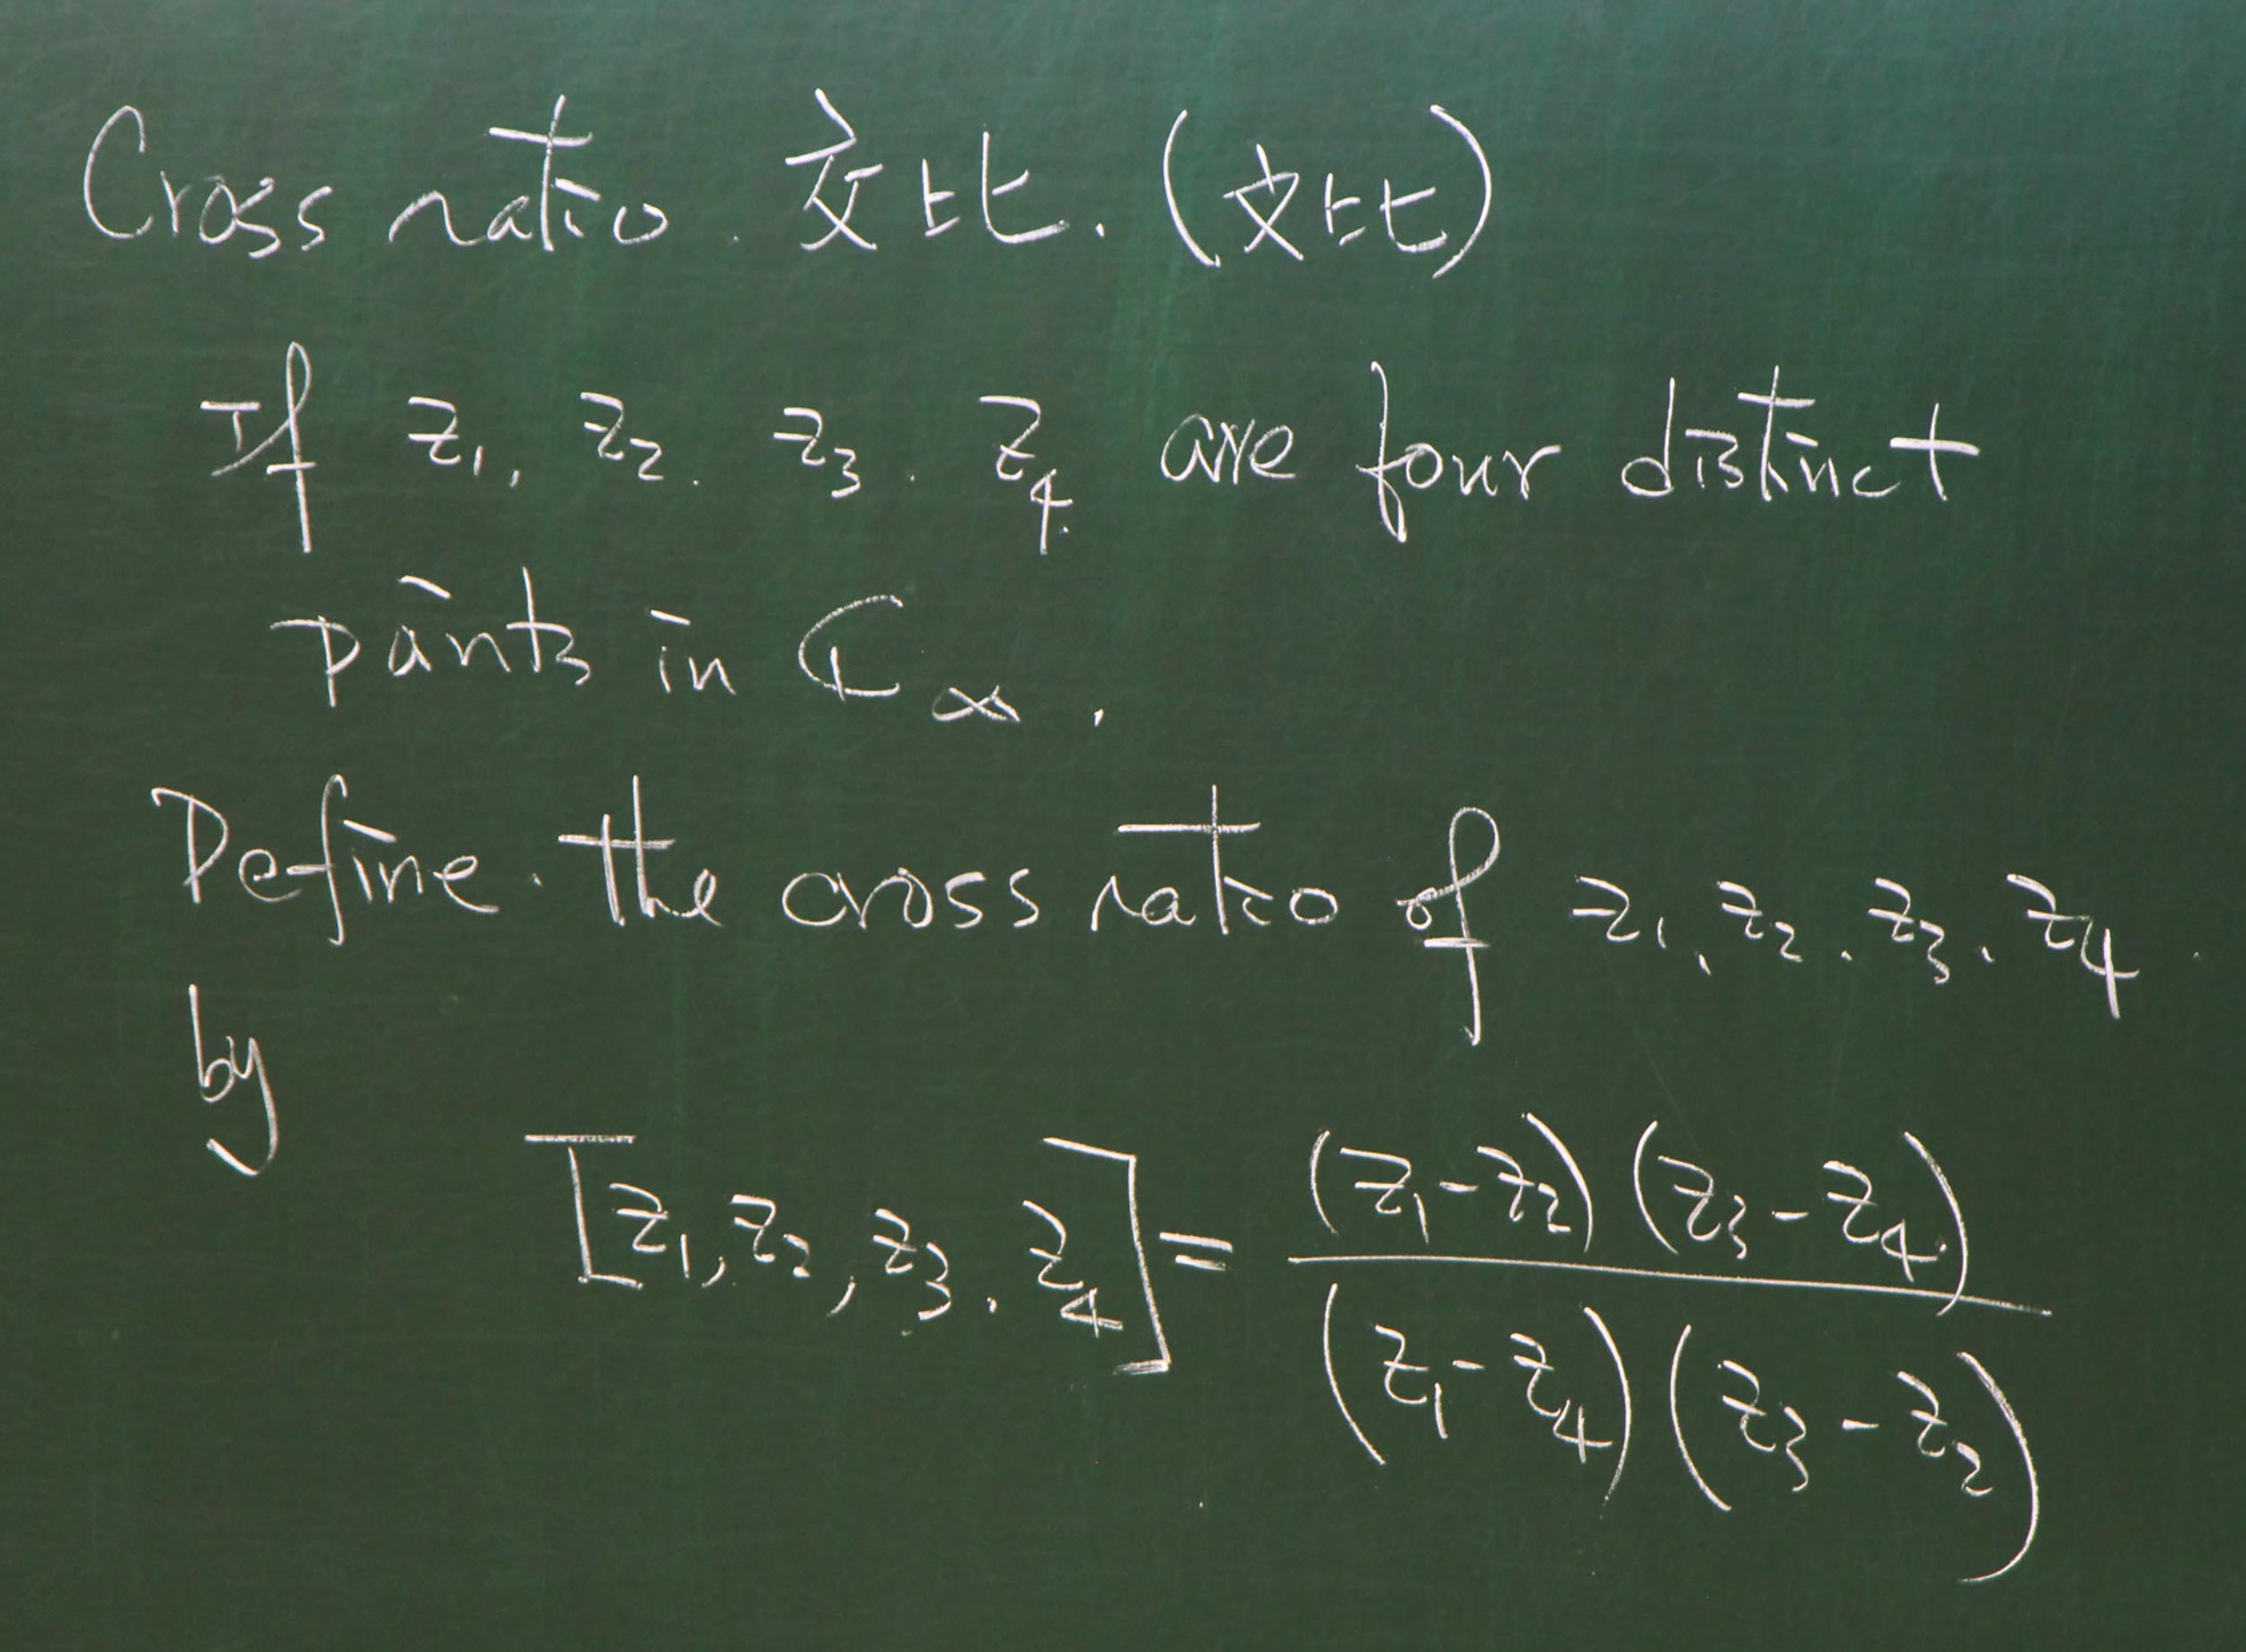 Cross ratio. 交比. (交比)
If z₁, z₂. z₃. z₄ are four distinct
points in ℂ∞.
Define. the cross ratio of z₁, z₂. z₃. z₄.
by
[z₁, z₂, z₃. z₄] = (z₁-z₂)(z₃-z₄) / (z₁-z₄)(z₃-z₂)